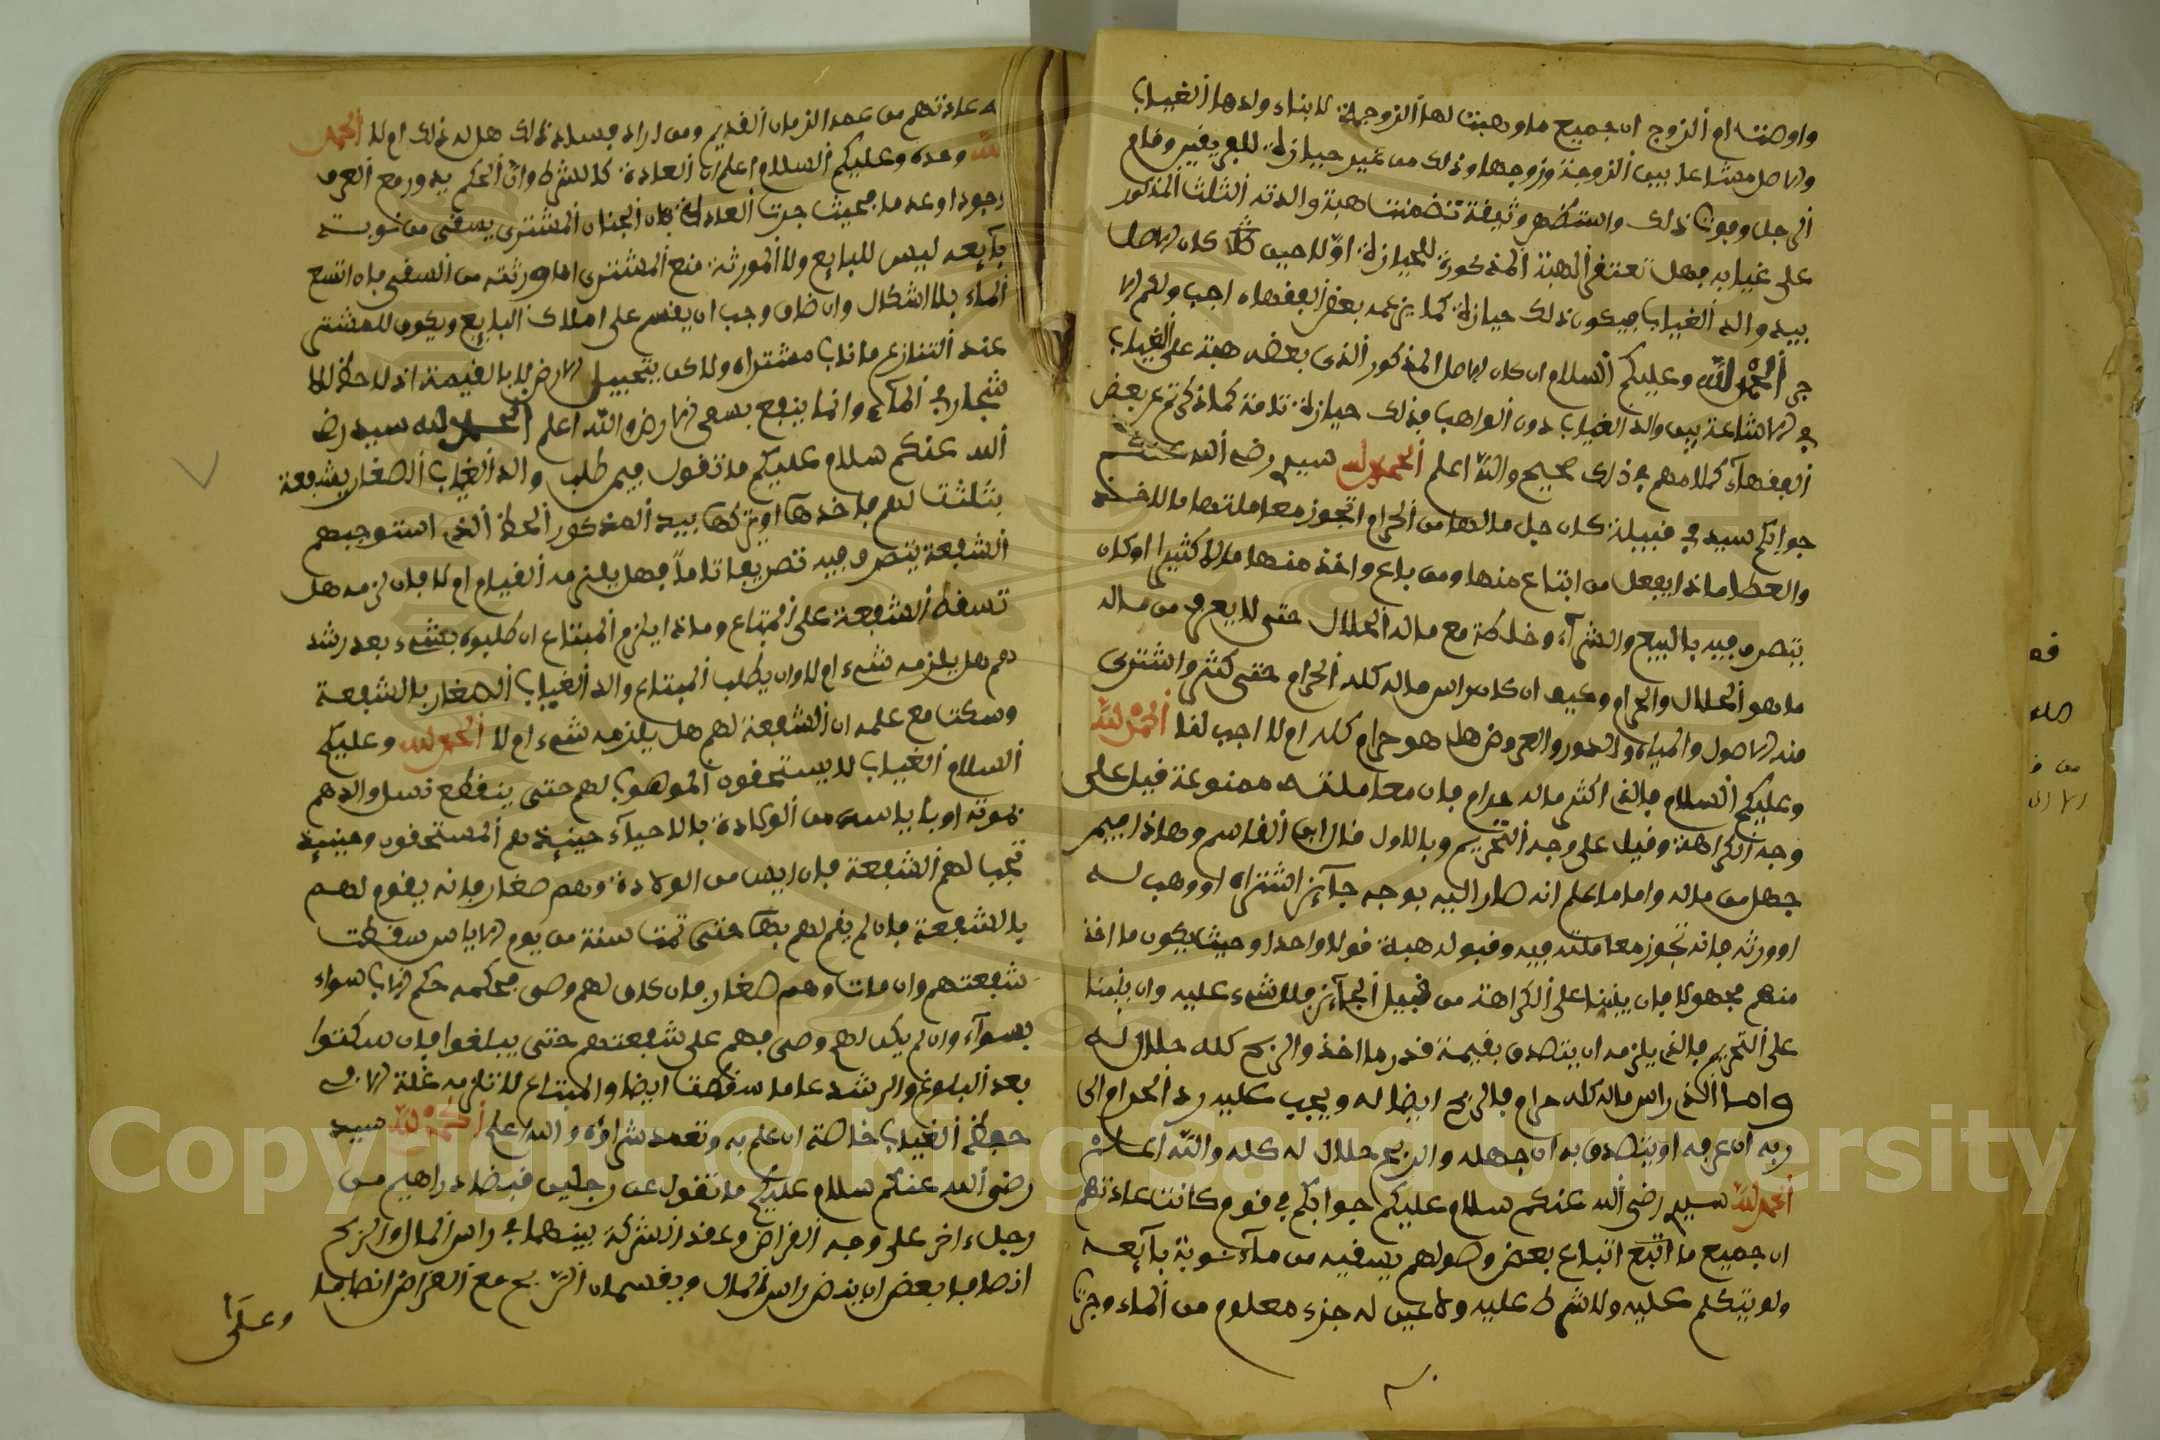 واوصت ام الزوج ان جميع ما وهبت لها الزوجة لابناء ولدها الغياب
والاصل مشاعا بين الزوجة وزوجها وذلك من غير حيازة للبريقين وقام
الرجل وبوت ذلك واستظهر وثيقة تضمنت هبة والدته الثلث المذكور
على غيابه فهل تفتقر الهبة المذكورة للحيازة اولا حيث كان الاصل
بيد والد الغياب فيكون ذلك حيازة كما يزعمه بعض الفقهاء اجب ولكم الا
جر الحمد لله وعليكم السلام ان كان الاصل المذكور الذى بعضه هبة على الغياب
في الاشاعة بين والد الغياب دون الواهب فذلك حيازة تامة كما ذكرتم عن بعض
الفقهاء كلامهم في ذلك صحيح والله اعلم الحمد لله سيدى رضي الله عنكم
جوابكم سيدى في قبيلة كان جل مالها من الحرام اتجوز معاملتها ما للاخذ
والعطا ماذا يفعل من ابتاع منها ومن باع واخذ منها مالا كثيرا او كان
يتصرف فيه بالبيع والشراء وخلطه مع ماله الحلال حتى لا يعرف من ماله
ما هو الحلال والحرام وكيف ان كان راس ماله كله الحرام حتى كثر واشترى
منه الاصول والمياه والدور والعروض هل هو حرام كله ام لا اجب لنا الحمد لله
وعليكم السلام فالذى اكثر ماله حرام فان معاملته ممنوعة قيل على
وجه الكراهة وقيل على وجه التحريم وبالاول قال ابن القاسم وهاذا فيمر
جهل من ماله واما ما علم انه صار اليه بوجه جآئز اشتراه او وهب له
او ورثه فانه تجوز معاملته فيه وقبول هبة قولا واحدا وحيث يكون ما اخذ
منهم مجهولا فان بنينا على الكراهة من قبيل الجآئز فلا شيء عليه وان بنينا
على التحريم فالذى يلزمه ان يتصدق بقيمة قدر ما اخذ والربح كله حلال له
واما الذى راس ماله كله حرام فالربح ايضا له ويجب عليه رد الحرام الى
ربه ان عرفه او يتصدق به ان جهله والربح حلال له كله والله اعلم
الحمد لله سيدى رضي الله عنكم سلام عليكم جوابكم في قوم كانت عادتهم
ان جميع ما ابتع اتباع بعض وصولهم يسقيه من مآء نوبة بآيعه
ولو يتكلم عليه ولا شرط عليه ولا عين له جزء معلوم من الماء وجرت
به عادتهم من عهد الزمان القديم ومن اراد فساد ذلك هل له ذلك ام لا الحمد
لله وحده وعليكم السلام اعلم ان العادة كالشرط وان الحكم يدور مع العرف
وجودا وعدما فحيث جرت العادة بان الجنان المشترى يسقى من نوبة
بآيعه ليس للبايع ولا الورثة منع المشترى او ورثته من السقي فان اتسع
الماء بلا اشكال وان ضاق وجب ان يقسم على املاك البايع ويكون للمشترى
عند التنازع ماناب مشتراه ولا كن يتحييل الارض لا بالقيمة اذ لا حظ للا
شجار في المآء وانما ينفع بسقي الارض والله اعلم الحمد لله سيد رضي
الله عنكم سلام عليكم ما تقول فيمن طلب والد الغياب الصغار بشفعة
بثلث لهم فاخذها او يتركها بيد المذكور الحظ الذى استوجبهم
الشفعة يتصرف فيه تصريفا تاما فهل يلزمه القيام ام لا فان لزمه هل
تسقط الشفعة على المبتاع وماذا يلزم المبتاع ان طلبوه بشيء بعد رشد
هم هل يلزمه شيء ام لا وان يطلب المبتاع والد الغياب الصغار بالشفعة
وسكت مع علمه ان الشفعة لهم هل يلزمه شيء ام لا الحمد لله وعليكم
السلام الغياب لا يستحقون الموهوب لهم حتى ينقطع نسل والدهم
بموته او باياسه من الولادة بالاحياء حينيذ هم المستحقون وحينيذ
تجب لهم الشفعة فان ايس من الولادة وهم صغار فانه يقوم لهم
بالشفعة فان لم يقم لهم بها حتى تمت سنة من يوم الاياس سقطت
شفعتهم وان مات وهم صغار فان كان لهم وصى فحكمه حكم الاب سواء
بسوآء وان لم يكن لهم وصى فهم على شفعتهم حتى يبلغوا فان سكتوا
بعد البلوغ والرشد عاما سقطت ايضا والمبتاع لا تلزمه غلة الا في
حظ الغياب خاصة ان علم به وتعمد شراؤه والله اعلم الحمد لله سيد
رضي الله عنكم سلام عليكم ما تقول عن رجلين قبضا دراهيم من
رجل ءاخر على وجه القراض وعقد الشركة بينهما في راس المال والربح
انصافا بعض ان ينض راس المال ويقسمان الربح مع القراض انصافا
وعلى
Copyright © King Saud University